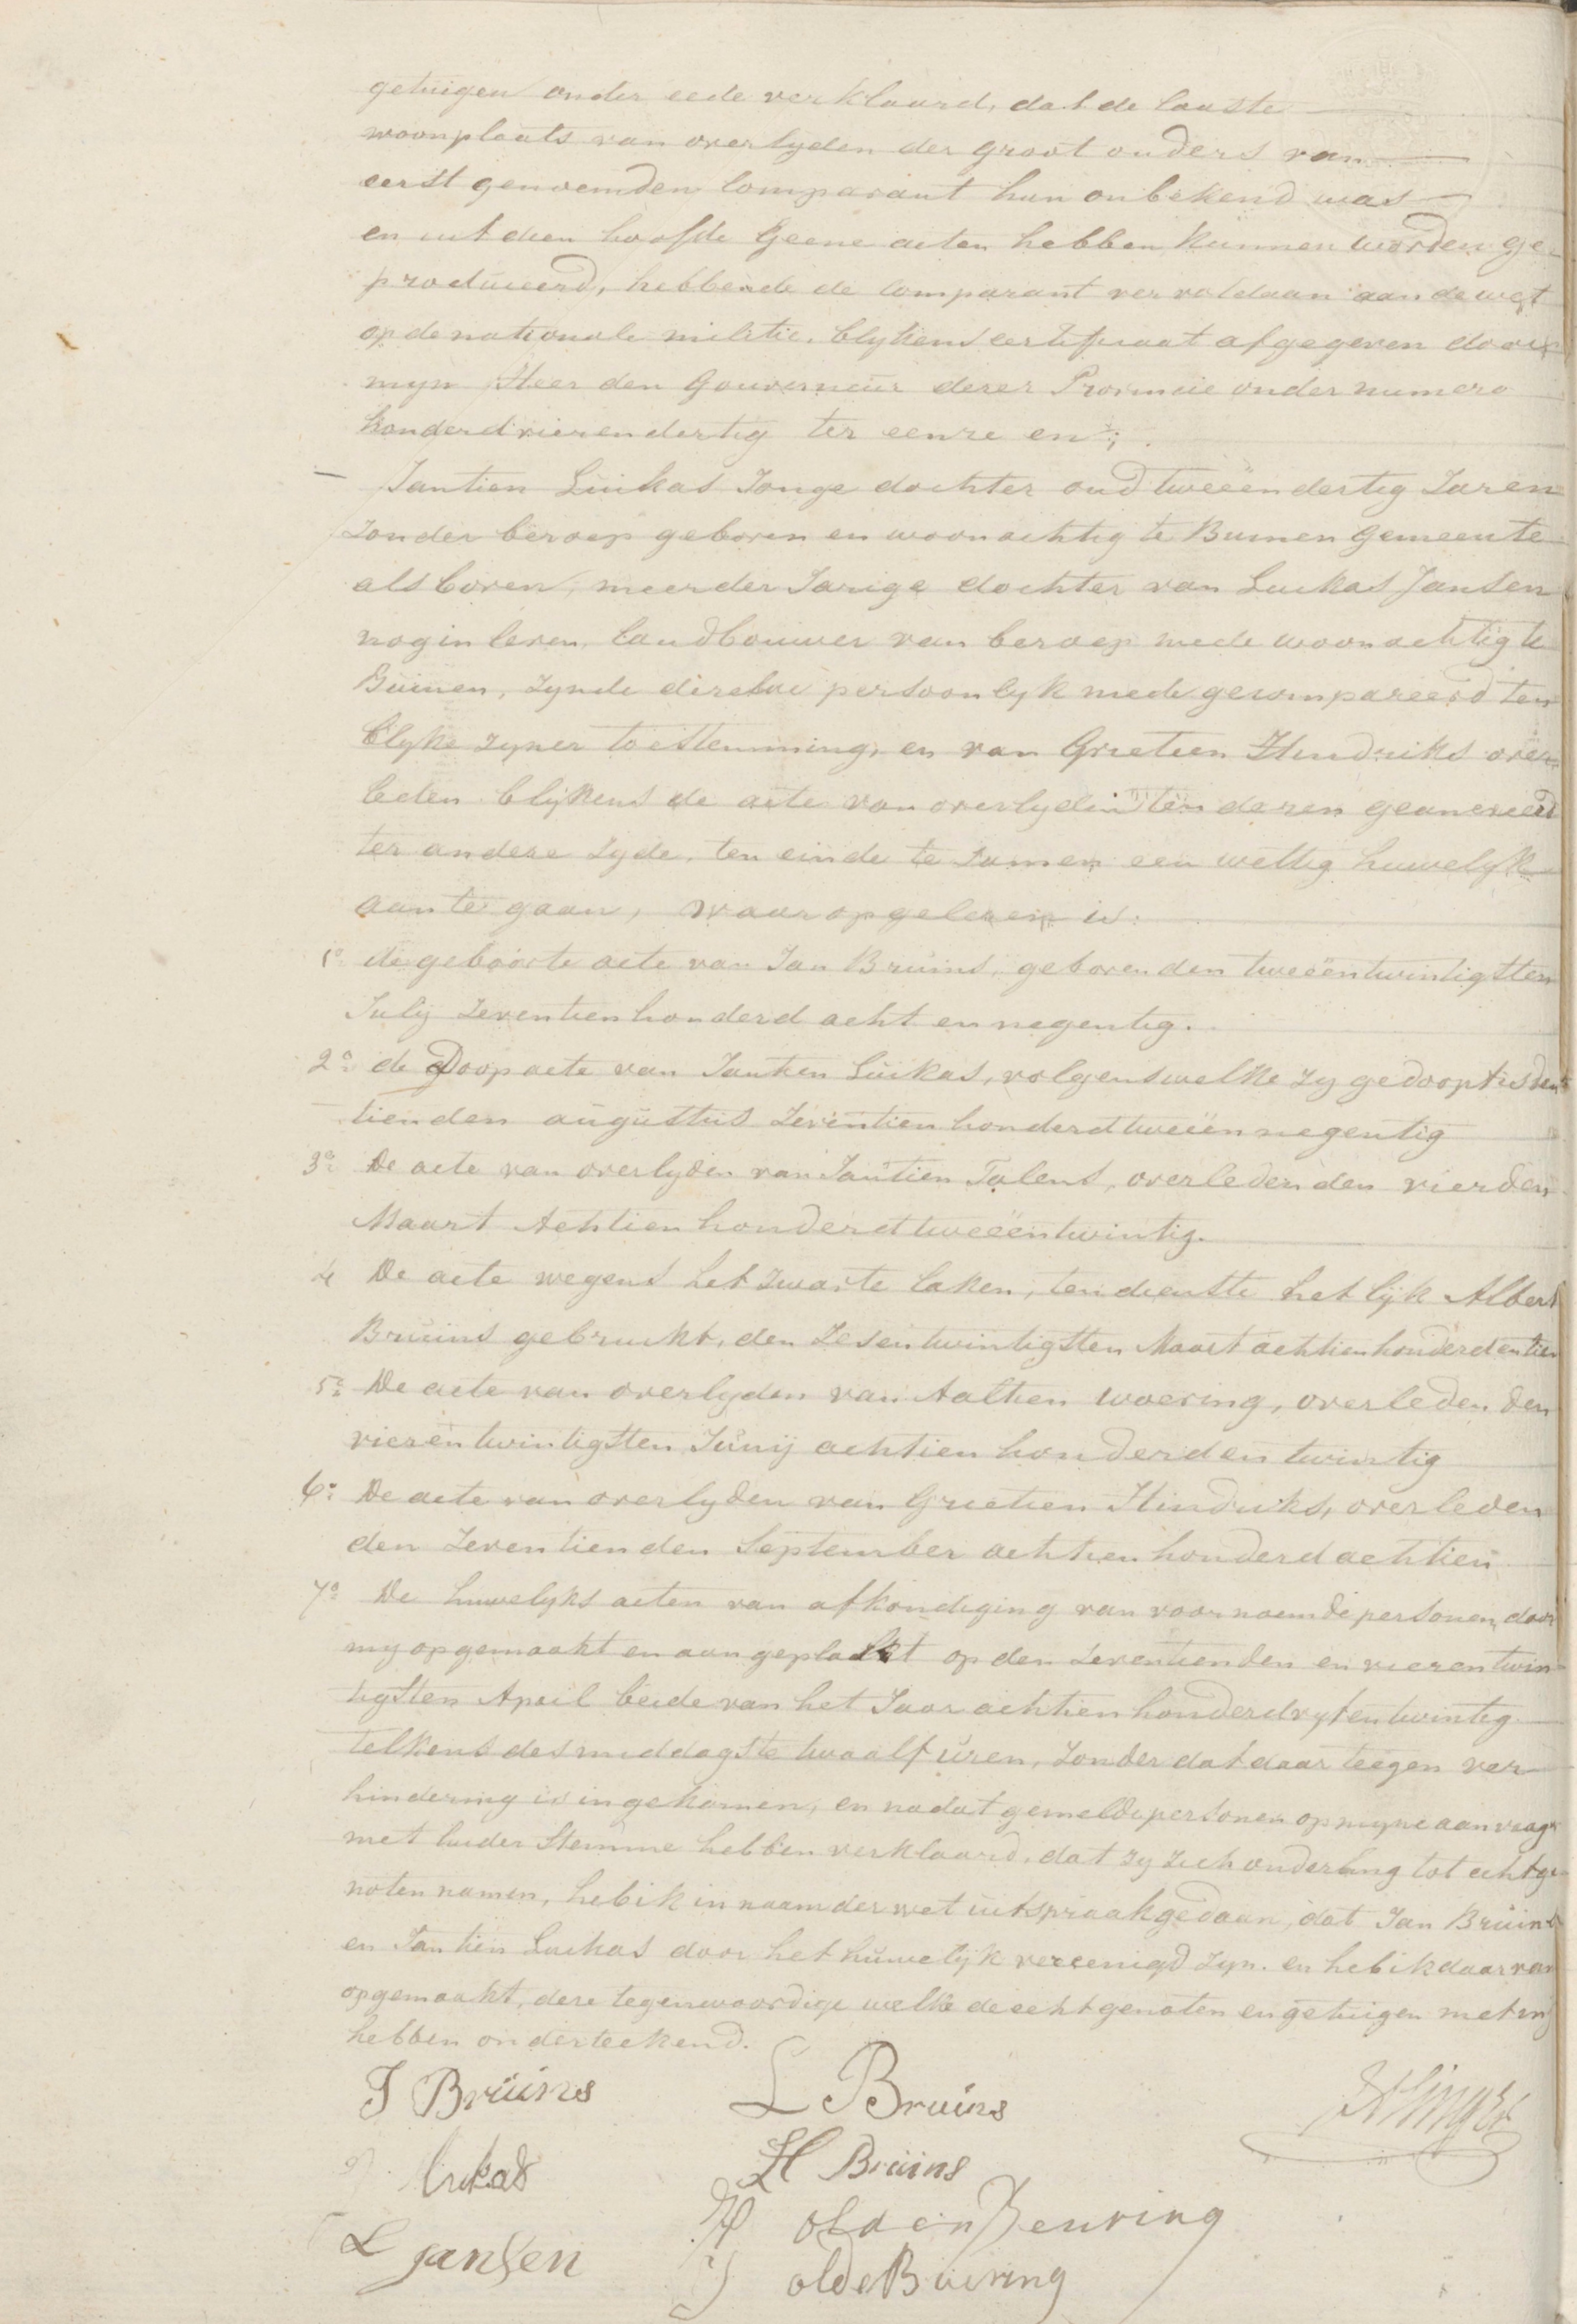 getuigen onder eede verklaard, dat de laatste
woonplaats van overlyden der groot ouders van
eerst genoemden Comparant hun onbekend was
en uit dien hoofde Geene acten hebben kunnen worden ge-
produceerd, hebbende de Comparant ver voldaan aan de wet
op de nationale militie, blykens certificaat afgegeven door
myn Heer den Gouverneur dezer Provincie onder numero
honderd vierendertig ter eenre en;
Jantien Luikas Jonge dochter oud tweeëndertig Jaren
Zonder beroep geboren en woonachtig te Buinen Gemeente
als boven, meerder Jarige dochter van Luikas Jansen
nog in leven, landbouwer van beroep mede woonachtig te
Buinen, zynde dezelve persoonlyk mede gecompareerd ten
blyke zyner toestemming, en van Grietien Hendriks over
leden blijkens de acte van overlyden ten dezen geanexeerd
ter andere zyde, ten einde te samen een wettig huwelyk
aan te gaan, waarop gelezen is:
1o de geboorte acte van Jan Bruins, geboren den tweeëntwintigsten
July Zeventienhonderd acht en negentig.
2o de Doop acte van Jantien Luikas, volgens welke zy gedoopt is den
tienden augustus Zeventien honderd tweeën negentig
3o De acte van overlyden van Jantien Talens, overleden den vierden
Maart Achtien honderd tweeëntwintig.
4 De acte wegens het Zwarte laken, ten dienste het lijk Albert
Bruins gebruikt, den Zesentwintigsten Maart achtienhonderd en tien
5o De acte van overlyden van Aaltien Woering, overleden den
vierentwintigsten Junij achtien honderd en twintig
6o De acte van overlyden van Grietien Hindriks, overleden
den Zeventienden September achtien honderd achtien
7o De huwelyks acten van afkondiging van voornoemde personen, door
my opgemaakt en aangeplakt op den Zeventienden en vierentwin-
tigsten April beide van het Jaar achtien honderd vyfentwintig
telkens des middags te twaalf uren, Zonder dat daar teegen ver-
hindering is ingekomen, en nadat gemelde personen op myne aanvrage
met luider Stemme hebben verklaard, dat zy zich onderling tot echtge-
noten namen, heb ik in naam der wet uitspraak gedaan, dat Jan Bruins
en Jantien Luikas door het huwelyk vereenigd zyn. en heb ik daar van
opgemaakt, deze tegenwoordige welke de echtgenoten en getuigen met my
hebben onderteekend.
J Bruins L Bruins
Lukas H Bruins
H olden Beuring
L Jansen J olde Buering